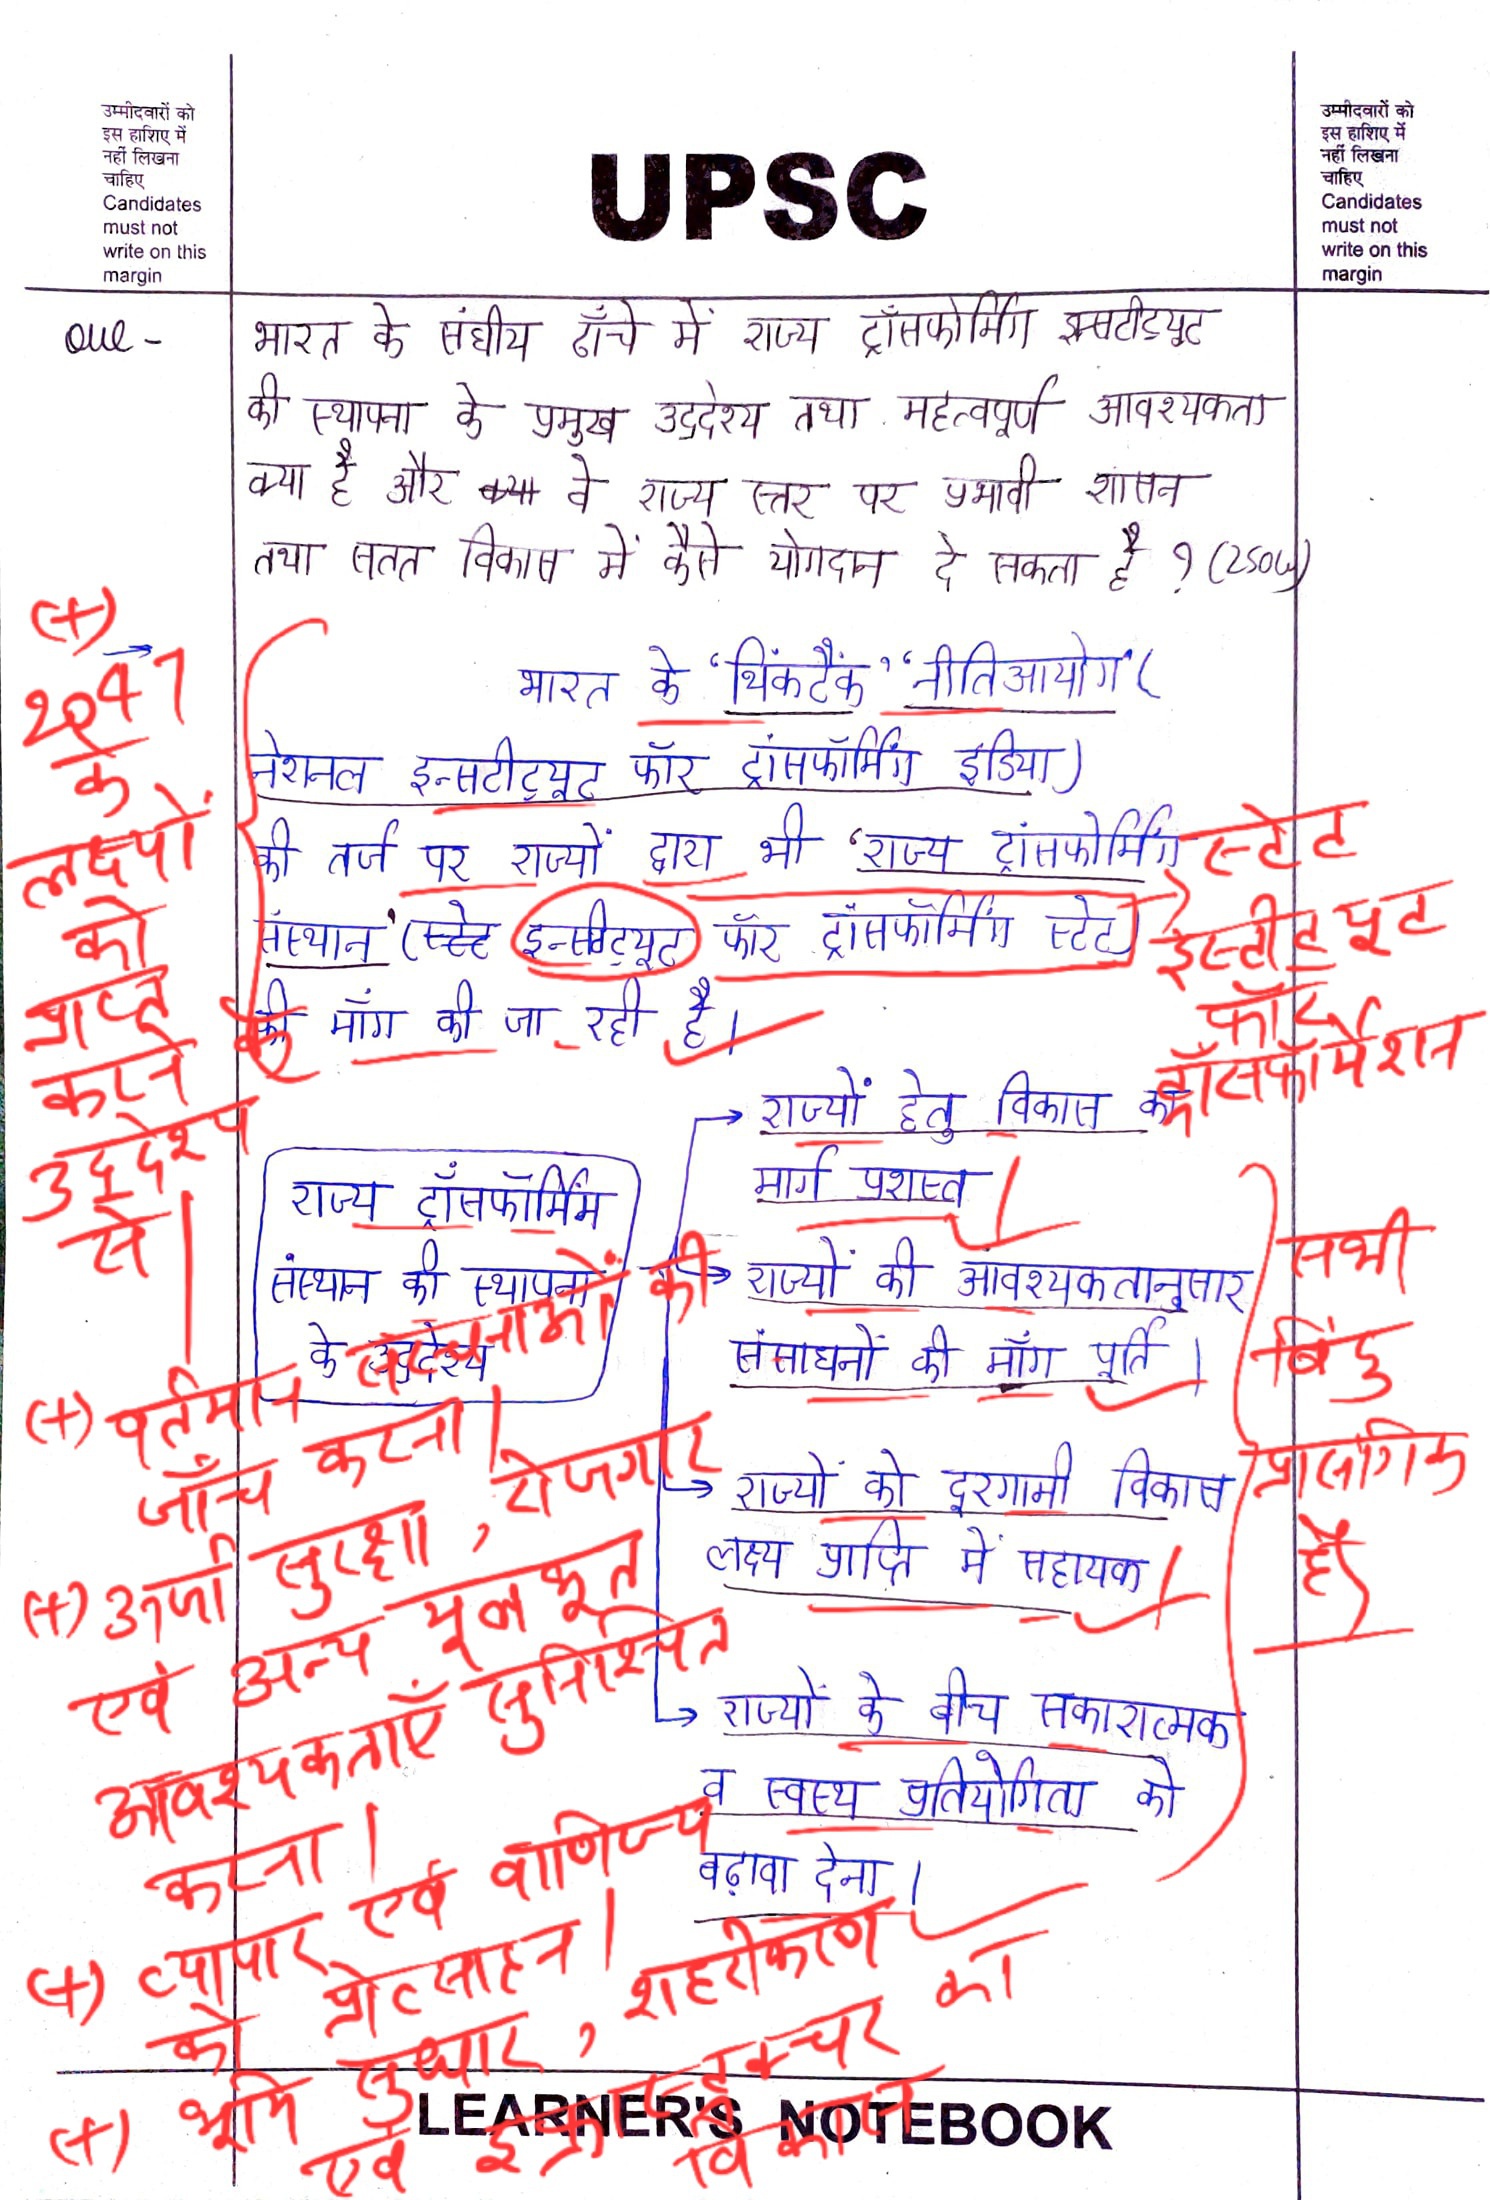 उम्मीदवारों को
इस हाशिए में
नहीं लिखना
चाहिए
Candidates
must not
write on this
margin
UPSC
उम्मीदवारों को
इस हाशिए में
नहीं लिखना
चाहिए
Candidates
must not
write on this
margin
Que -
भारत के संघीय ढाँचे में राज्य ट्राँसफोर्मिंग इन्सटीट्यूट
की स्थापना के प्रमुख उद्देश्य तथा महत्वपूर्ण आवश्यकता
क्या है और क्या वे राज्य स्तर पर प्रभावी शासन
तथा सतत विकास में कैसे योगदान दे सकता है ? (250W)
भारत के 'थिंकटैंक' 'नीतिआयोग' (
नेशनल इन्सटीट्यूट फॉर ट्रांसफॉर्मिंग इंडिया)
की तर्ज पर राज्यों द्वारा भी 'राज्य ट्रांसफोर्मिंग
संस्थान' (स्टेट इन्सटीट्यूट फॉर ट्रांसफॉर्मिंग स्टेट)
की माँग की जा रही है।
(+)
2047
के
लक्ष्यों
को
प्राप्त
करने के
उद्देश्य
से।
स्टेट
इंस्टीट्यूट
फॉर
ट्राँसफॉर्मेशन
राज्य ट्राँसफॉर्मिंग
संस्थान की स्थापना
के उद्देश्य
राज्यों हेतु विकास का
मार्ग प्रशस्त
राज्यों की आवश्यकतानुसार
संसाधनों की माँग पूर्ति।
राज्यों को दूरगामी विकास
लक्ष्य प्राप्ति में सहायक।
राज्यों के बीच सकारात्मक
व स्वस्थ प्रतियोगिता को
बढ़ावा देना।
सभी
बिंदु
प्रासंगिक
है
(+) वर्तमान संरचनाओं की
जाँच करना।
(+) ऊर्जा सुरक्षा, रोजगार
एवं अन्य मूलभूत
आवश्यकताएँ सुनिश्चित
करना।
(+) व्यापार एवं वाणिज्य
को प्रोत्साहन।
(+) भूमि सुधार, शहरीकरण
एवं इंफ्रास्ट्रक्चर का
विकास
LEARNER'S NOTEBOOK